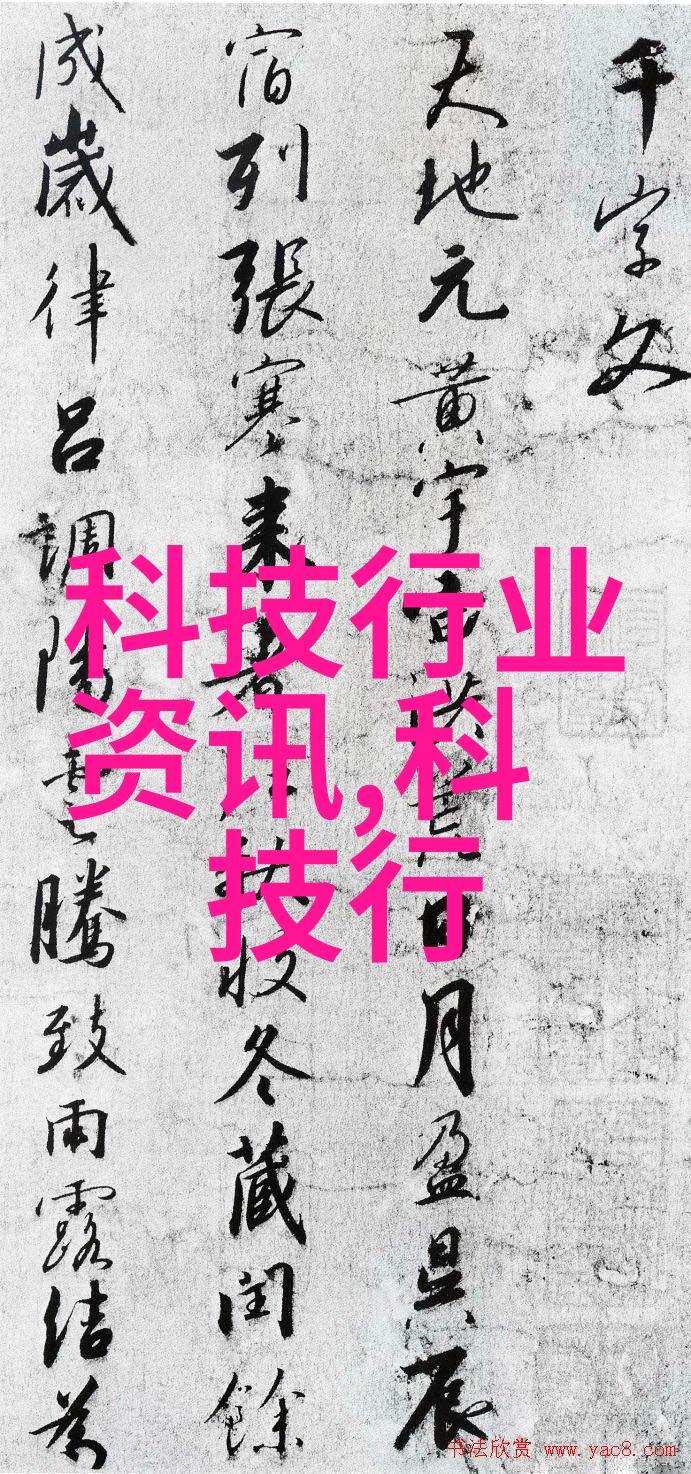 千字文
天地元黄宇宙洪荒日月盈昃辰
宿列張寒来暑往秋收冬蔵閏餘
成歲律呂調陽雲騰致雨露结為
科技行业
资讯,科
技行
书法欣赏 www.yac8.com